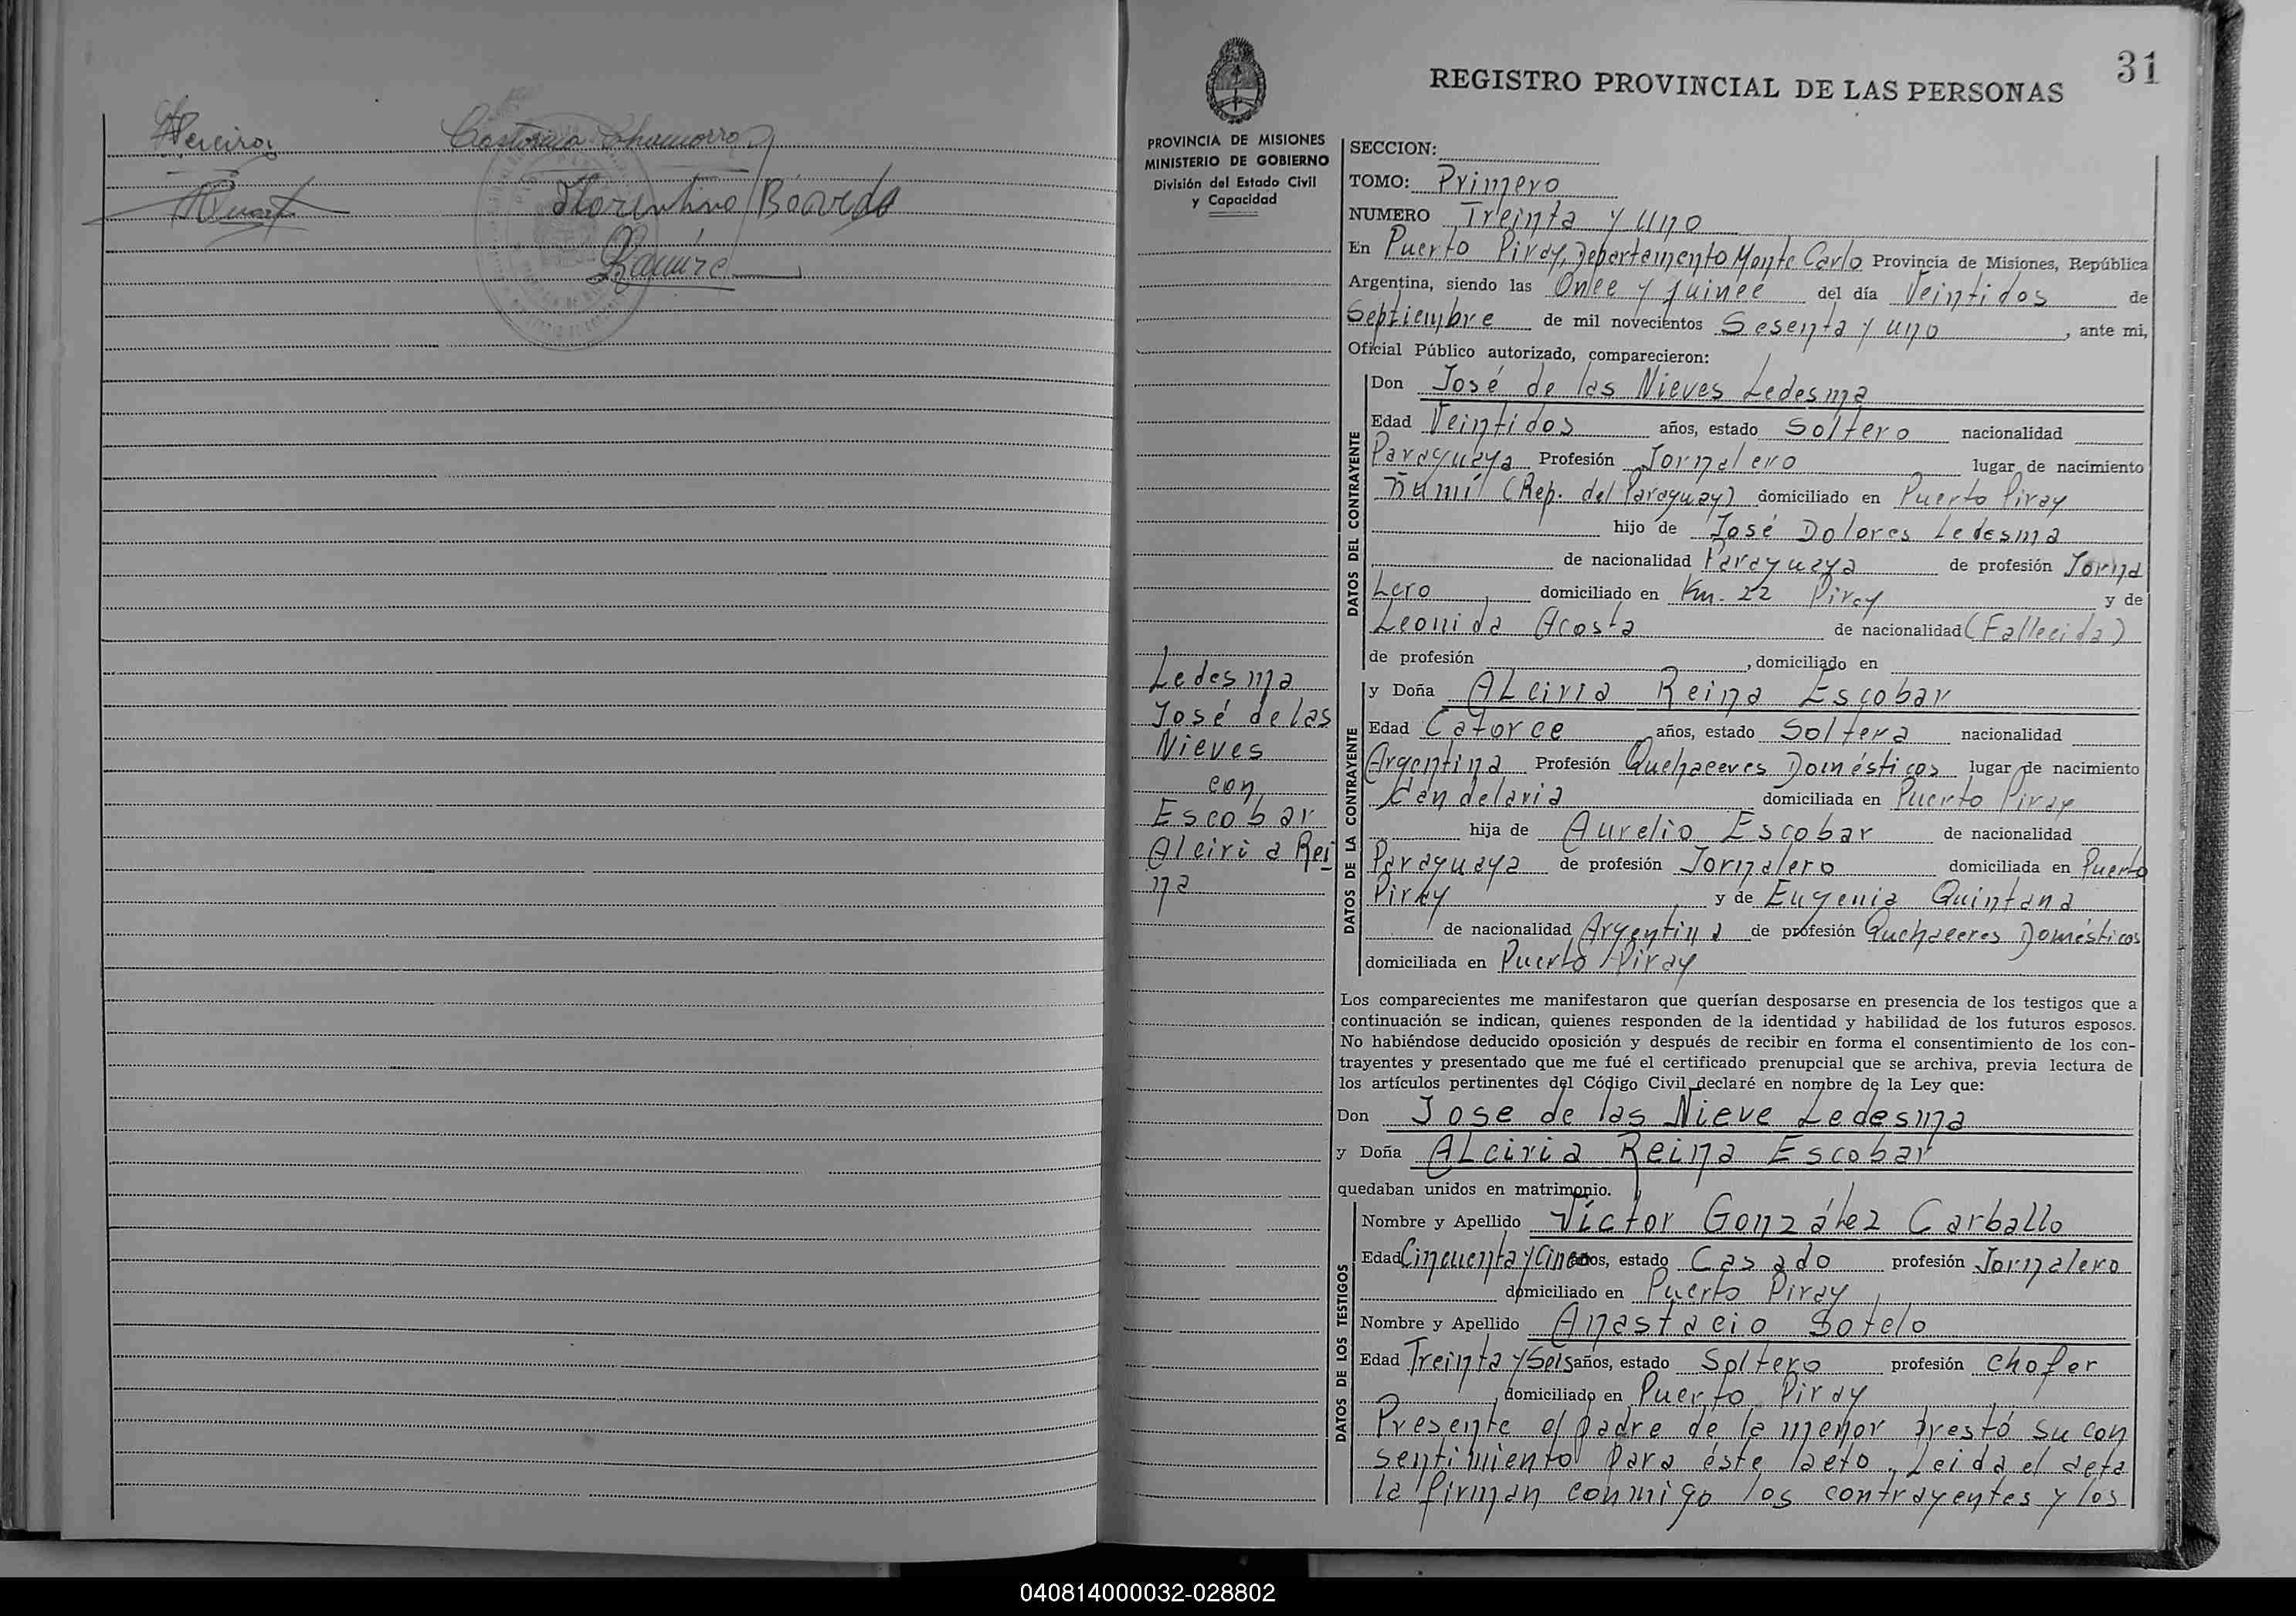 Pereira
Castorina Chamorro
Florentino Bóveda
Ramírez
31
REGISTRO PROVINCIAL DE LAS PERSONAS
PROVINCIA DE MISIONES
MINISTERIO DE GOBIERNO
División del Estado Civil
y Capacidad
Ledesma
José de las
Nieves
con
Escobar
Alciria Rei
na
SECCION:
TOMO: Primero
NUMERO Treinta y uno
En Puerto Piray, Departamento Monte Carlo Provincia de Misiones, República
Argentina, siendo las Once y quince del día Veintidos de
Septiembre de mil novecientos Sesenta y uno, ante mi,
Oficial Público autorizado, comparecieron:
DATOS DEL CONTRAYENTE
Don José de las Nieves Ledesma
Edad Veintidos años, estado Soltero nacionalidad
Paraguaya Profesión Jornalero lugar de nacimiento
Ñumí (Rep. del Paraguay) domiciliado en Puerto Piray
hijo de José Dolores Ledesma
de nacionalidad Paraguaya de profesión Jorna
Lero domiciliado en Km. 22 Piray y de
Leonida Acosta de nacionalidad (Fallecida)
de profesión , domiciliado en
DATOS DE LA CONTRAYENTE
y Doña ALciria Reina Escobar
Edad Catorce años, estado Soltera nacionalidad
Argentina Profesión Quehaceres Domésticos lugar de nacimiento
Candelaria domiciliada en Puerto Piray
hija de Aurelio Escobar de nacionalidad
Paraguaya de profesión Jornalero domiciliada en Puerto
Piray y de Eugenia Quintana
de nacionalidad Argentina de profesión Quehaceres Domésticos
domiciliada en Puerto Piray
Los comparecientes me manifestaron que querían desposarse en presencia de los testigos que a
continuación se indican, quienes responden de la identidad y habilidad de los futuros esposos.
No habiéndose deducido oposición y después de recibir en forma el consentimiento de los con-
trayentes y presentado que me fué el certificado prenupcial que se archiva, previa lectura de
los artículos pertinentes del Código Civil declaré en nombre de la Ley que:
Don Jose de las Nieve Ledesma
y Doña ALciria Reina Escobar
quedaban unidos en matrimonio.
DATOS DE LOS TESTIGOS
Nombre y Apellido Víctor González Carballo
Edad Cincuenta y Cinco años, estado Casado profesión Jornalero
domiciliado en Puerto Piray
Nombre y Apellido Anastacio Sotelo
Edad Treinta y Seis años, estado Soltero profesión chofer
domiciliado en Puerto Piray
Presente el padre de la menor prestó su con
sentimiento para éste acto. Leida el acta
la firman conmigo los contrayentes y los
040814000032-028802